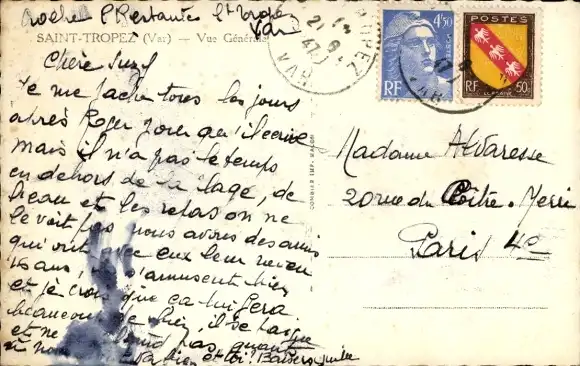 St Tropez
Var
SAINT-TROPEZ (Var) — Vue Générale
Chère Suzy
Je me fache tous les jours
après Roger pour qu'il ecrive
mais il n'a pas le temps
en dehors de la plage, de
l'eau et les repas on ne
le voit pas nous avons des amis
qui ont avec eux leur neveu
16 ans, s'amusent bien
et je crois que ça lui fera
beaucoup de bien, il se
et ne pas quant
à nous va bien et toi? Baisers
TROPEZ
VAR
4F50
POSTES
RF
POSTES
RF
50c
LORRAINE
Madame Alvaresse
20 rue du Cloitre-Merri
Paris 4e
COMBIER IMP. MACON